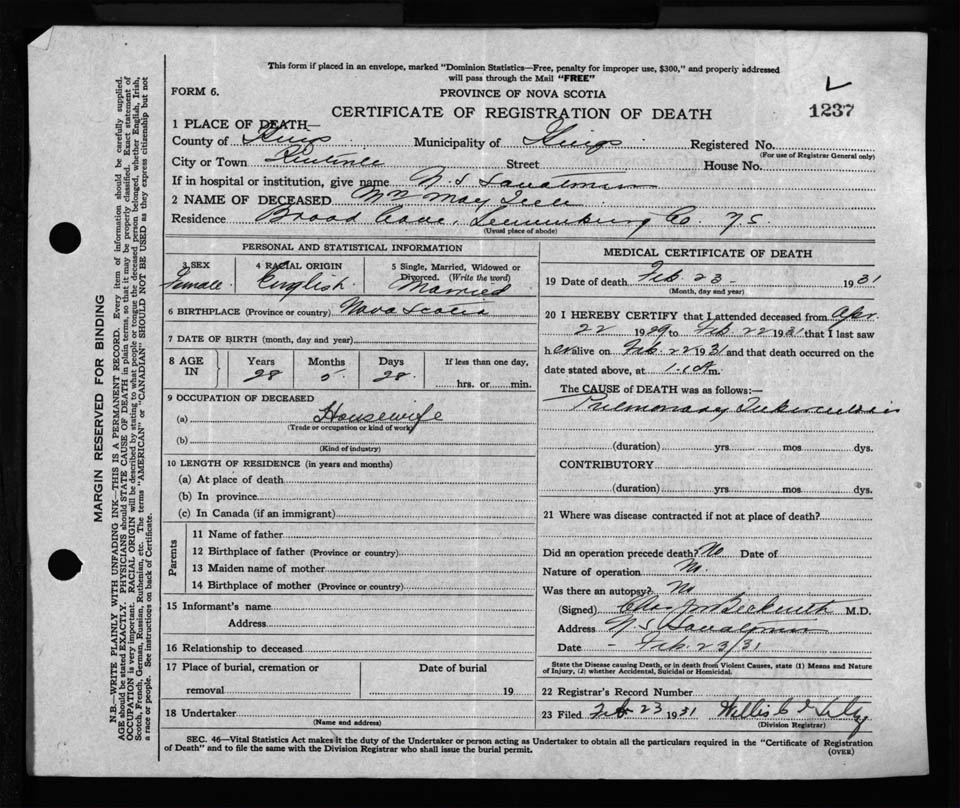 This form if placed in an envelope, marked "Dominion Statistics—Free, penalty for improper use, $300," and properly addressed
will pass through the Mail "FREE"
FORM 6.
PROVINCE OF NOVA SCOTIA
1237
CERTIFICATE OF REGISTRATION OF DEATH
1 PLACE OF DEATH—
County of Kings Municipality of Kings Registered No.
(For use of Registrar General only)
City or Town Kentville Street House No.
If in hospital or institution, give name N. S. Sanatorium
2 NAME OF DECEASED Mrs May
Residence Broad Cove, Lunenburg Co N.S.
(Usual place of abode)
PERSONAL AND STATISTICAL INFORMATION
3 SEX
Female
4 RACIAL ORIGIN
English
5 Single, Married, Widowed or
Divorced. (Write the word)
Married
6 BIRTHPLACE (Province or country) Nova Scotia
7 DATE OF BIRTH (month, day and year)
8 AGE IN Years Months Days If less than one day,
28 5 28 hrs. or min.
9 OCCUPATION OF DECEASED
(a) Housewife
(Trade or occupation or kind of work)
(b)
(Kind of industry)
10 LENGTH OF RESIDENCE (in years and months)
(a) At place of death
(b) In province
(c) In Canada (if an immigrant)
Parents
11 Name of father
12 Birthplace of father (Province or country)
13 Maiden name of mother
14 Birthplace of mother (Province or country)
15 Informant's name
Address
16 Relationship to deceased
17 Place of burial, cremation or Date of burial
removal 19
18 Undertaker
(Name and address)
MEDICAL CERTIFICATE OF DEATH
19 Date of death Feb. 23 - 1931
(Month, day and year)
20 I HEREBY CERTIFY that I attended deceased from Apr.
22 1929 to Feb 22 1931 that I last saw
h er alive on Feb. 22 1931 and that death occurred on the
date stated above, at m.
The CAUSE of DEATH was as follows:—
Pulmonary Tuberculosis
(duration) yrs. mos dys.
CONTRIBUTORY
(duration) yrs mos dys.
21 Where was disease contracted if not at place of death?
Did an operation precede death? No Date of
Nature of operation
Was there an autopsy? No
(Signed) Beckwith M.D.
Address N S Sanatorium
Date - Feb. 23/31
State the Disease causing Death, or in death from Violent Causes, state (1) Means and Nature
of Injury, (2) whether Accidental, Suicidal or Homicidal.
22 Registrar's Record Number
23 Filed Feb 23 1931
(Division Registrar)
SEC. 46—Vital Statistics Act makes it the duty of the Undertaker or person acting as Undertaker to obtain all the particulars required in the "Certificate of Registration
of Death" and to file the same with the Division Registrar who shall issue the burial permit.
(OVER)
MARGIN RESERVED FOR BINDING
N.B.—WRITE PLAINLY WITH UNFADING INK—THIS IS A PERMANENT RECORD. Every item of information should be carefully supplied.
AGE should be stated EXACTLY. PHYSICIANS should STATE CAUSE OF DEATH in plain terms, so that it may be properly classified. Exact statement of
OCCUPATION is very important. RACIAL ORIGIN will be described by stating to what people or tongue the deceased person belonged, whether English, Irish,
Scotch, French, German, Russian, Ruthenian, etc. The terms "AMERICAN" or "CANADIAN" SHOULD NOT BE USED as they express citizenship but not
a race or people. See instructions on back of Certificate.